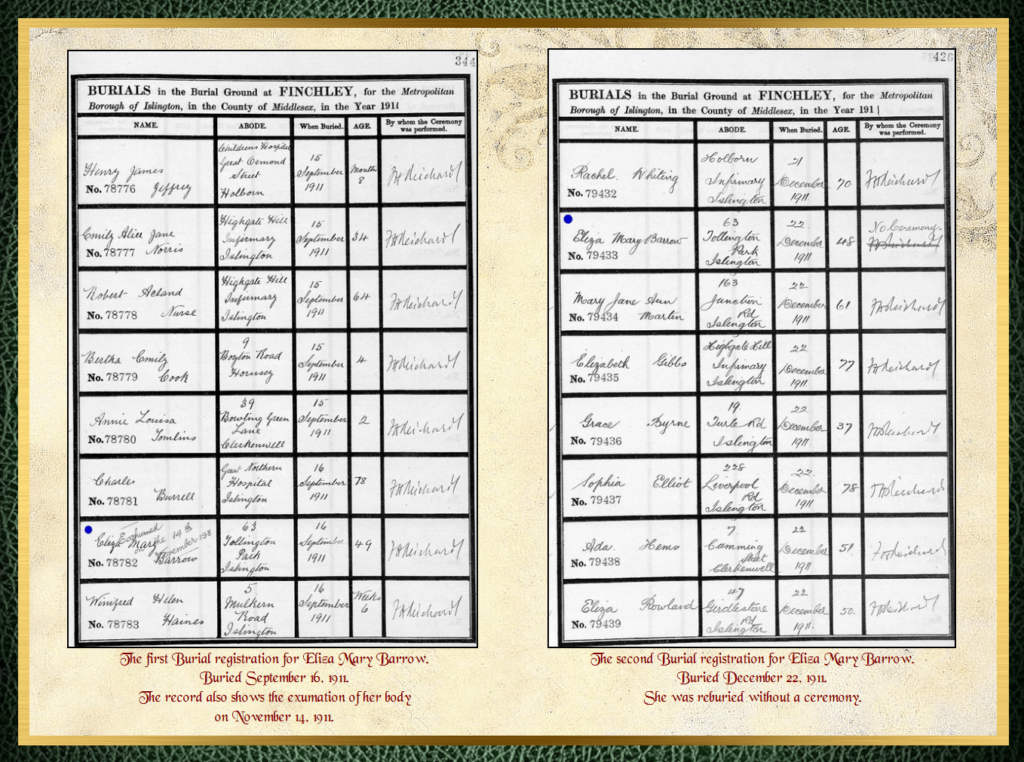 344
BURIALS in the Burial Ground at FINCHLEY, for the Metropolitan
Borough of Islington, in the County of Middlesex, in the Year 1911
NAME. ABODE. When Buried. AGE. By whom the Ceremony was performed.
Henry James Jeffrey No. 78776
Childrens Hospital
Great Ormond
Street
Holborn
15 September 1911
Months 8
FHReichardt
Emily Alice Jane Norris No. 78777
Highgate Hill
Infirmary
Islington
15 September 1911
34
FHReichardt
Robert Acland Nurse No. 78778
Highgate Hill
Infirmary
Islington
15 September 1911
64
FHReichardt
Bertha Emily Cook No. 78779
9
Boyton Road
Hornsey
15 September 1911
4
FHReichardt
Annie Louisa Tomlins No. 78780
39
Bowling Green
Lane
Clerkenwell
15 September 1911
2
FHReichardt
Charles Burrell No. 78781
Great Northern
Hospital
Islington
16 September 1911
78
FHReichardt
Eliza Mary Barrow No. 78782
Exhumed on the 14th November 1911
63
Tollington
Park
Islington
16 September 1911
49
FHReichardt
Winifred Helen Haines No. 78783
5
Mulkern
Road
Islington
16 September 1911
Weeks 6
FHReichardt
The first Burial registration for Eliza Mary Barrow.
Buried September 16, 1911.
The record also shows the exumation of her body
on November 14, 1911.
426
BURIALS in the Burial Ground at FINCHLEY, for the Metropolitan
Borough of Islington, in the County of Middlesex, in the Year 1911
NAME. ABODE. When Buried. AGE. By whom the Ceremony was performed.
Rachel Whiting No. 79432
Holborn
Infirmary
Islington
21 December 1911
70
FHReichardt
Eliza Mary Barrow No. 79433
63
Tollington
Park
Islington
22 December 1911
48
No Ceremony
FHReichardt
Mary Jane Ann Martin No. 79434
163
Junction
Rd
Islington
22 December 1911
61
FHReichardt
Elizabeth Gibbs No. 79435
Highgate Hill
Infirmary
Islington
22 December 1911
77
FHReichardt
Grace Byrne No. 79436
19
Turle Rd
Islington
22 December 1911
37
FHReichardt
Sophia Elliot No. 79437
228
Liverpool
Rd
Islington
22 December 1911
78
FHReichardt
Ada No. 79438
7
Cumming
Street
Clerkenwell
22 December 1911
51
FHReichardt
Eliza Rowland No. 79439
47
Girdlestone
Rd
Islington
22 December 1911
50
FHReichardt
The second Burial registration for Eliza Mary Barrow.
Buried December 22, 1911.
She was reburied without a ceremony.